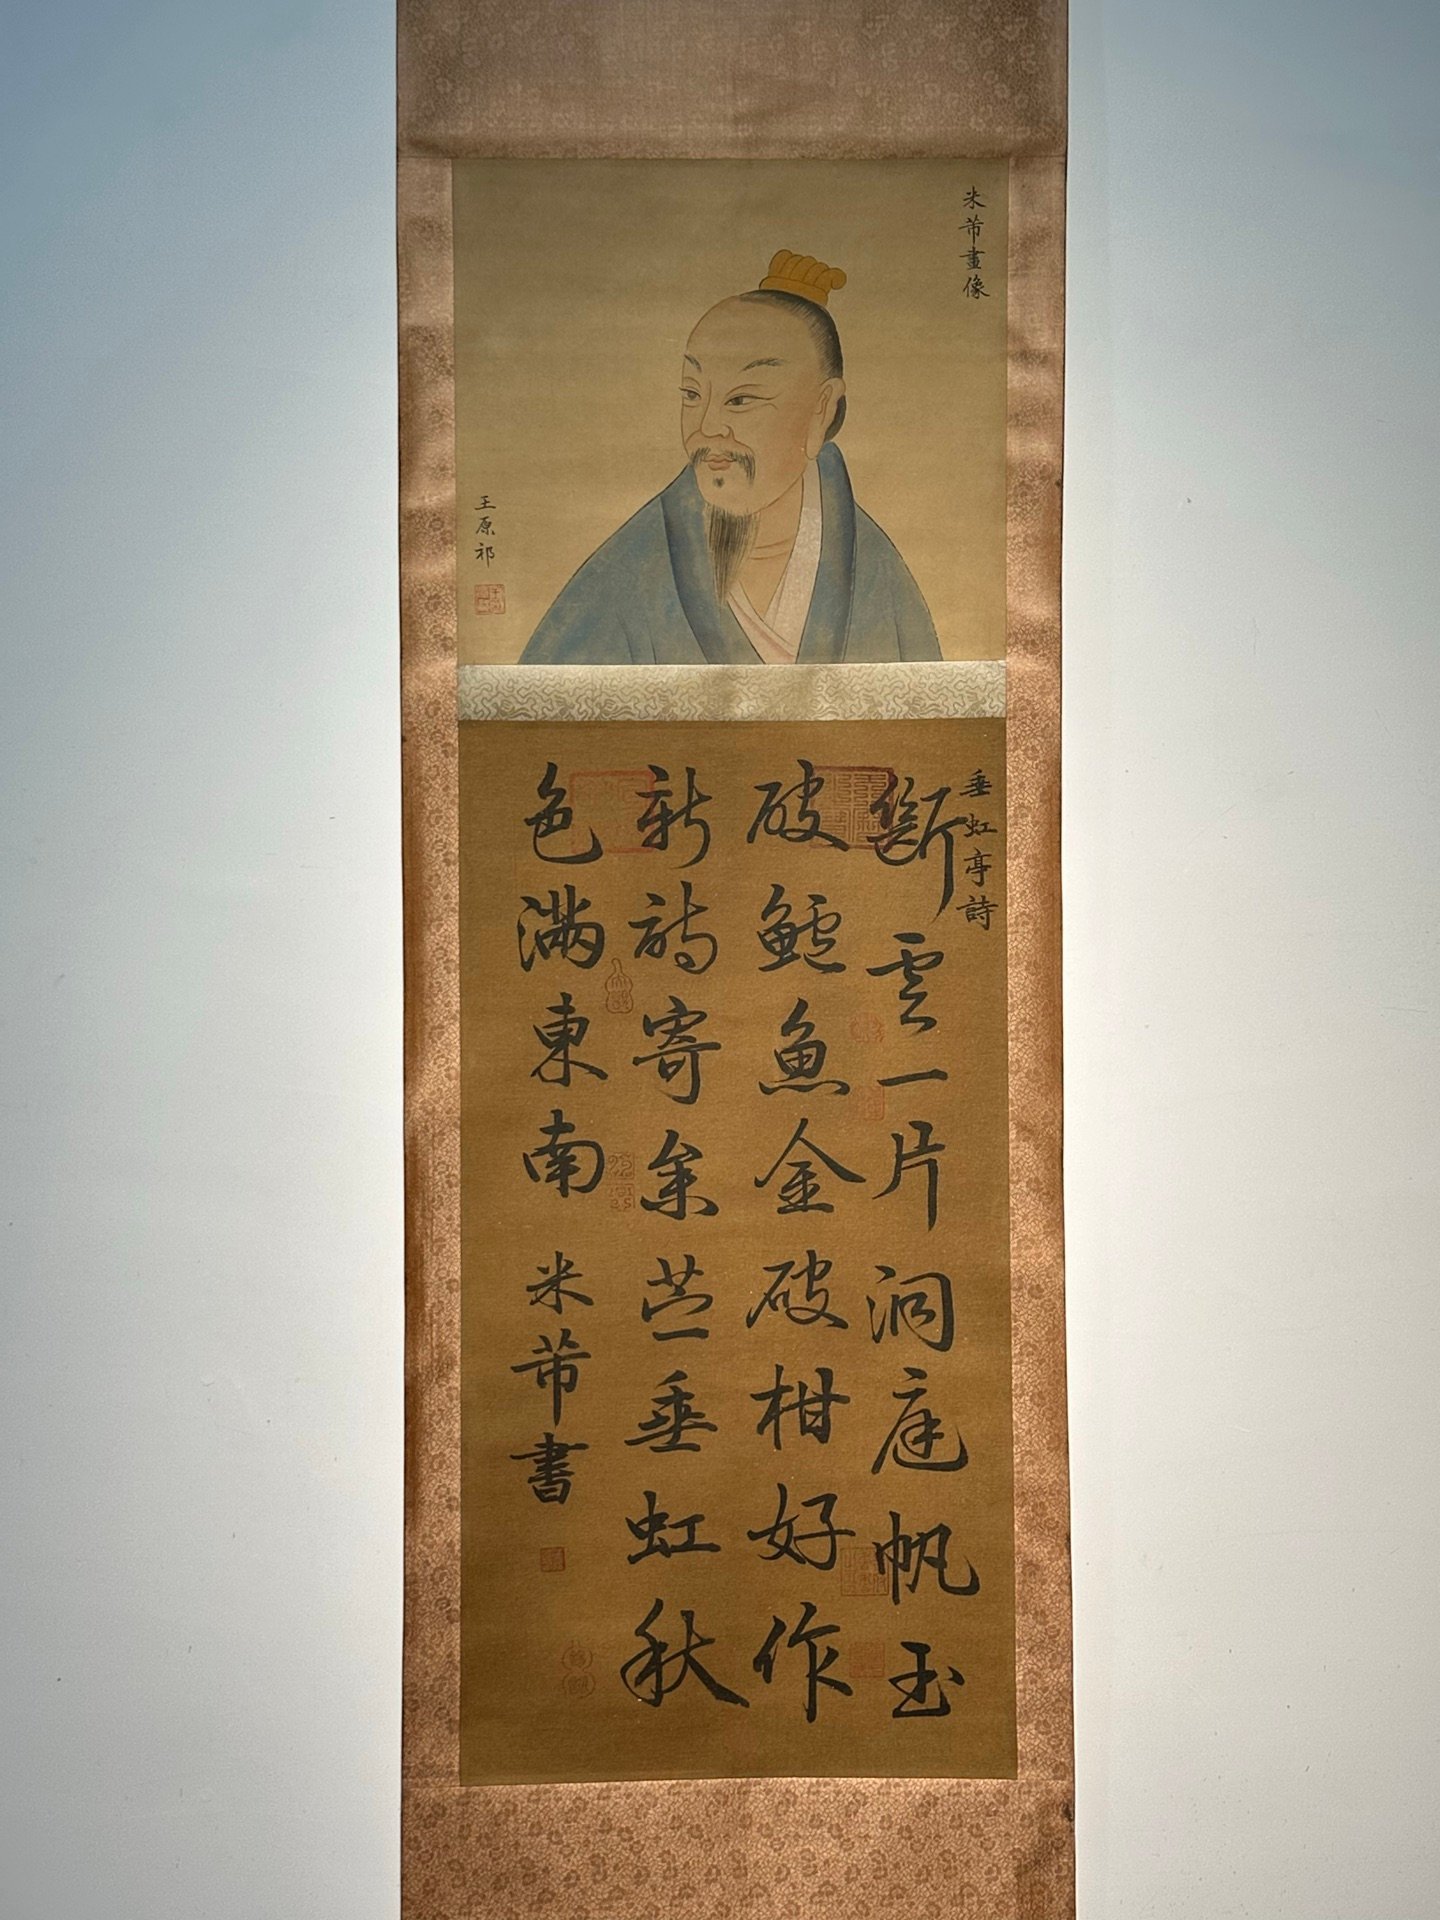 米芾畫像
王原祁
垂虹亭詩
斷雲一片洞庭帆玉
破鱸魚金破柑好作
新詩寄桒苧垂虹秋
色滿東南 米芾書